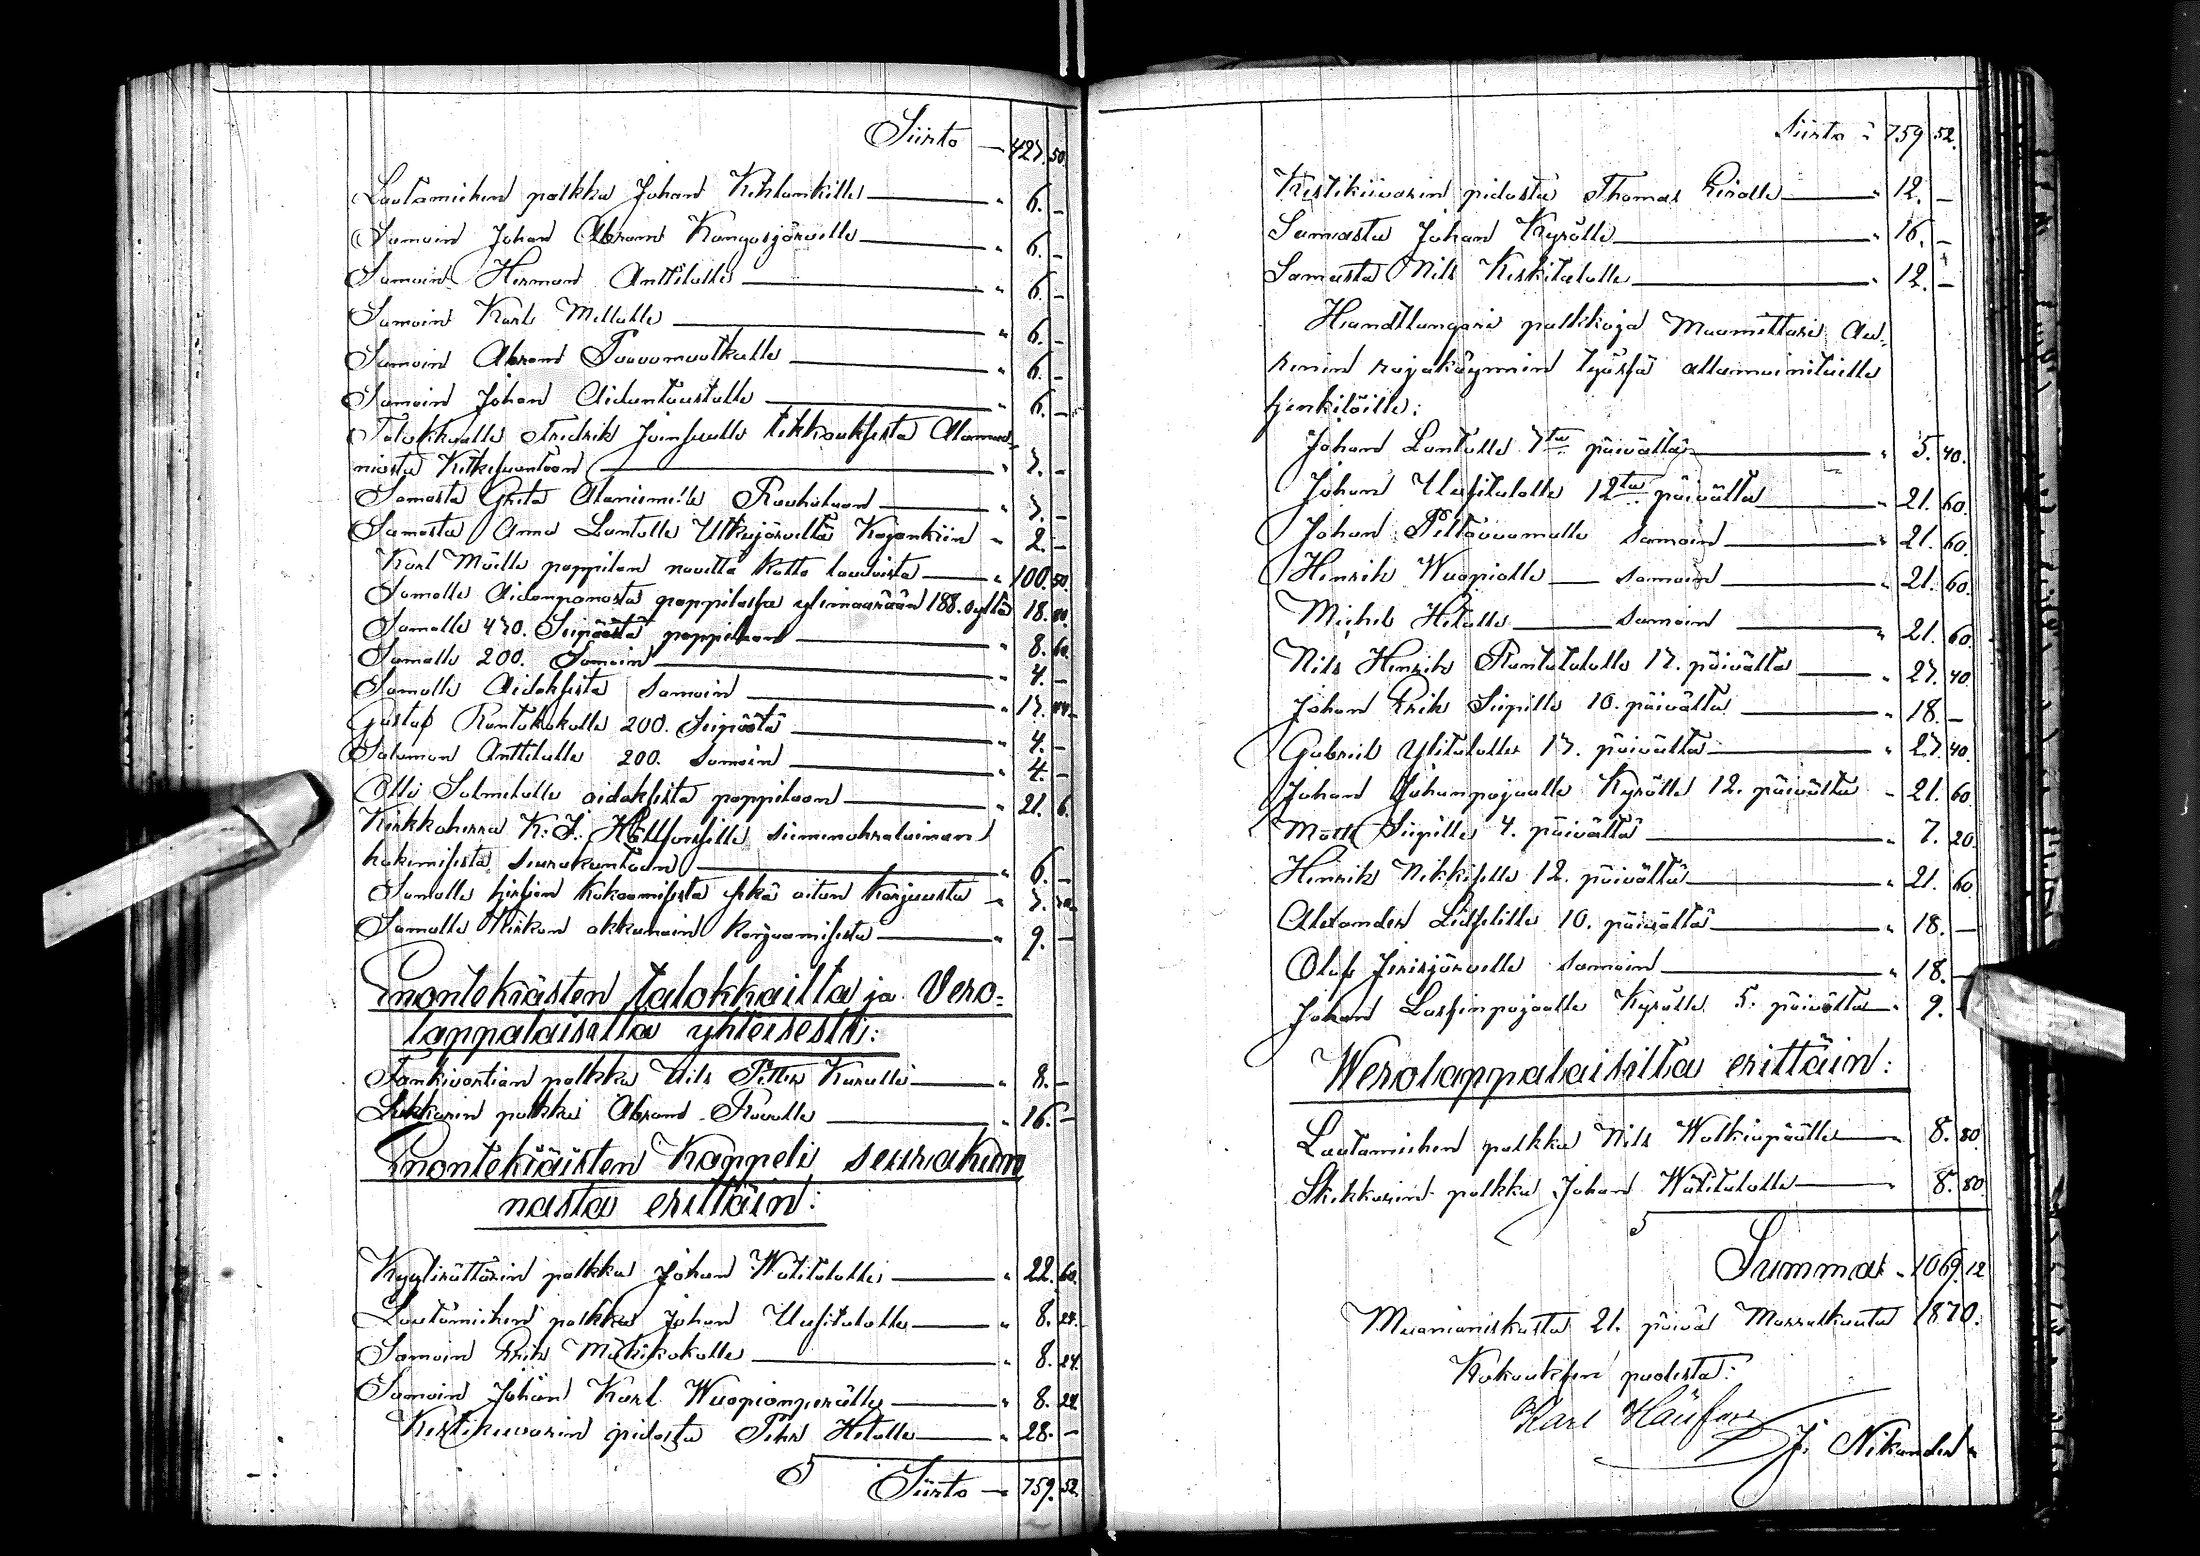 Siirto — 427. 50.
Lautamiehen palkka Johan Kihlankille — " 6. –
Samoin Johan Abram Kangosjärvelle — " 6. –
Samoin Herman Anttilalle — " 6. –
Samoin Karl Mellalle — " 6. –
Samoin Abram Tuovomuotkalle — " 6. –
Samoin Johan Aidantaustalle — " 6. –
Talokkaalle Fredrik Joensuulle likkauksesta Alamuo-
niosta Kitkisuantoon — " 7. –
Samasta Greta Alaniemelle Rauhalaan — " 7. –
Samasta Anna Lantolle Utkujärveltä Kajankiin " 2. –
Karl Mäille pappilan navetta katto laudoista — " 100. 50.
Samalle Aidanpanosta pappilassa ylimäärään 188. syltä 18. 80.
Samalle 430. Seipäästä pappilaan — " 8. 60.
Samalle 200. Samoin — " 4. –
Samalle Aidaksista samoin — " 17. 44.
Gustaf Rantakokolle 200. Seipästä — " 4. –
Salomon Anttilalle 200. samoin — " 4. –
Olli Salmelalle aidaksista pappilaan — " 21. 6.
Kirkkoherra K. J. Hällforssille siemenohralainan
hakemisesta seurakuntaan — " 6. –
Samalle hirsien kokoomisesta sekä aitan korjuusta " 7. 70.
Samalle Kirkon akkunain korjaamisesta — " 9. –
Enontekiästen talokkailta ja Vero-
lappalaisilta yhteisesti:
Fankivartian palkka Nils Petter Kurulle — " 8. –
Lukkarin palkka Abram Rovalle — " 16. –
Enontekiäisten Kappeli seurakun
nasta erittäin:
Kyytirättärin palkka Johan Wälitalolle — " 22. 60.
Lautamiehen palkka Johan Uusitalolle — " 8. 24.
Samoin Erik Mäkikokolle — " 8. 24.
Samoin Johan Karl Wuopionperälle — " 8. 24.
Kestikievarin pidosta Pehr Hetalle — " 28. –
Siirto — 759. 52.
Siirto " 759 52.
Kestikiivarin pidosta Thomas Eiralle — " 12. –
Samasta Johan Kyrölle — " 16. –
Samasta Nils Keskitalolle — " 12. –
Handtlangari palkkoja Maamittari Au-
renin rajakäymin työssä allamainituille
henkilöille:
Johan Lantolle 3tta päivältä — " 5. 40.
Johan Uusitalolle 12tta päivältä — " 21. 60.
Johan Peltovuomalle samoin — " 21. 60.
Henrik Wuopiolle — samoin — " 21. 60.
Michel Hetalle — samoin — " 21. 60.
Nils Henrik Rantatalolle 13. päivältä — " 23. 40.
Johan Erik Siepille 10. päivältä — " 18. –
Gabriel Ylitalolle 13. päivältä — " 23. 40.
Johan Johanpojalle Kyrölle 12. päivältä " 21. 60.
Matts Siepille 4. päivältä — " 7. 20.
Henrik Nikkiselle 12. päivältä — " 21. 60
Alexander Liisselille 10. päivältä — " 18. –
Olof Jerisjärvelle samoin — " 18. –
Johan Lassinpojalle Kyrölle 5. päivältä — " 9. –
Werolappalaisilta erittäin:
Lautamiehen palkka Nils Walkiapäälle — " 8. 80.
Skikkarin palkka Johan Wälitalolle — " 8. 80.
Summa " 1069. 12
Muonionniskasta 21. päivä Marraskuuta 1870.
Kokouksen puolesta:
Karl Hällfors
J. Nikander